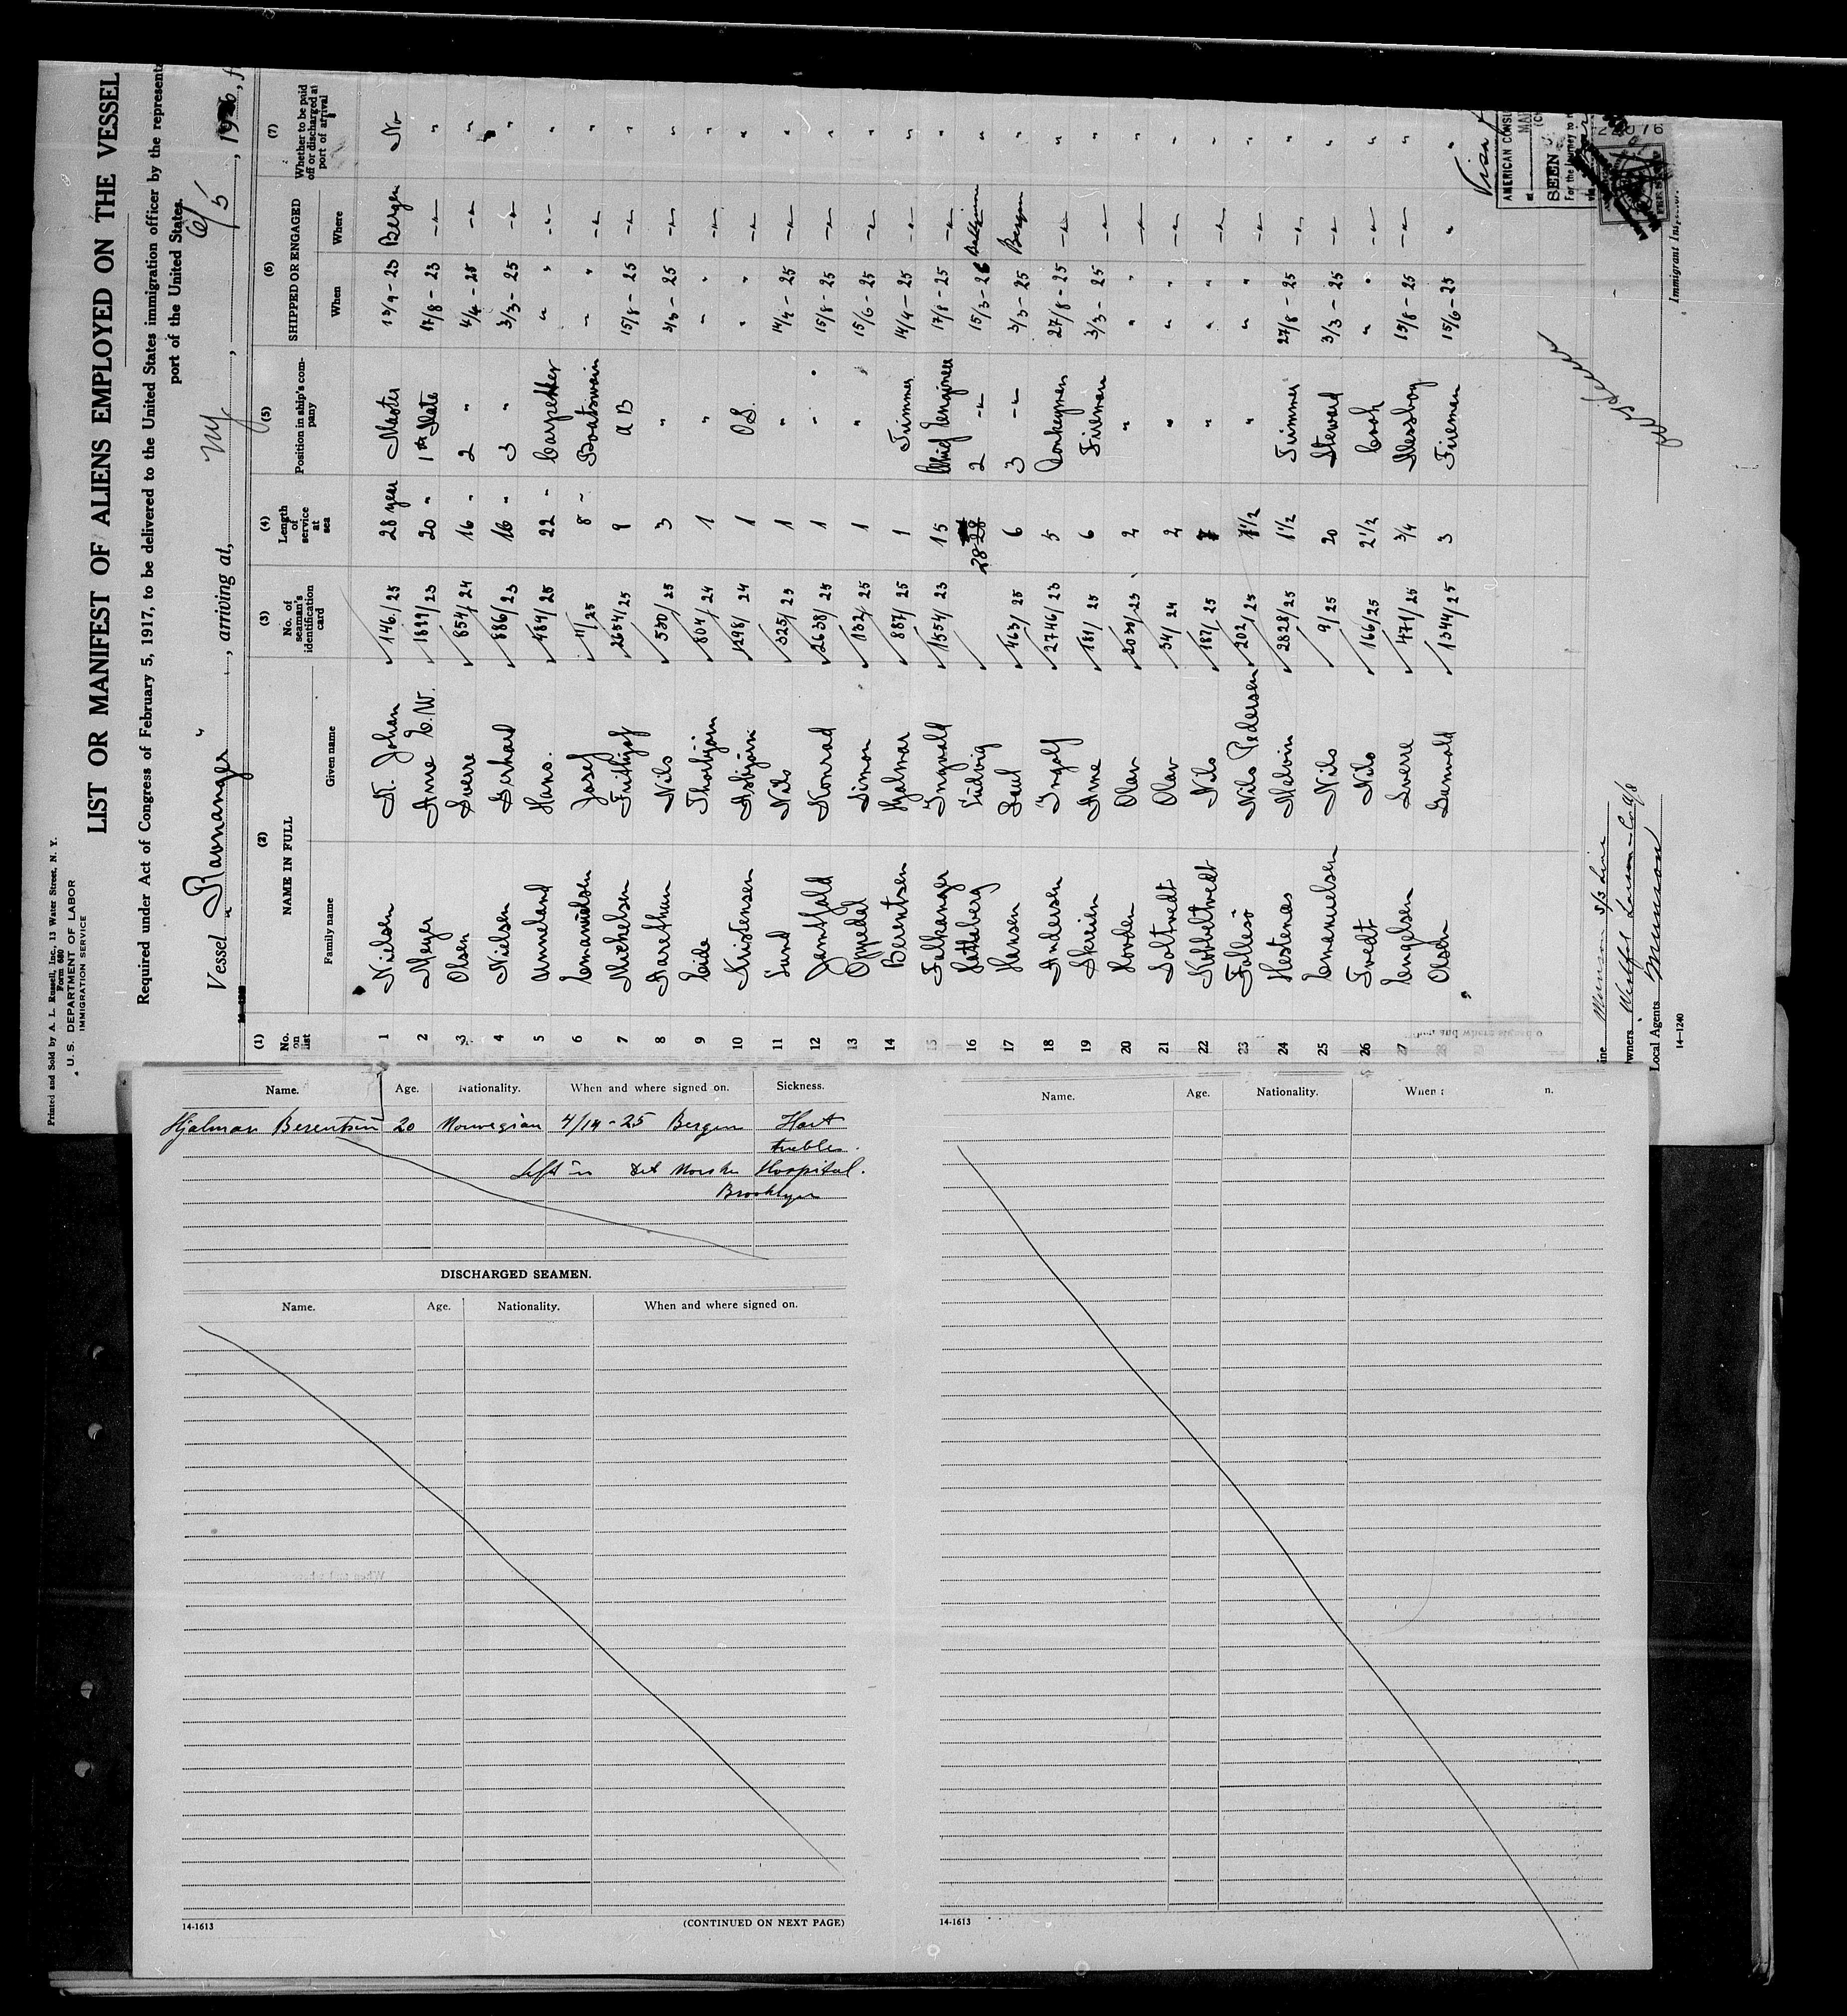 Printed and Sold by A. L. Russell, Inc. 13 Water Street, N. Y.
Form 680
U. S. DEPARTMENT OF LABOR
IMMIGRATION SERVICE
LIST OR MANIFEST OF ALIENS EMPLOYED ON THE VESSEL
Required under Act of Congress of February 5, 1917, to be delivered to the United States immigration officer by the represent
port of the United States
Vessel " Rannanger ", arriving at, NY, 6/5, 1926, f
(1) (2) (3) (4) (5) (6) (7)
No. on list NAME IN FULL No. of seaman's identification card Length of service at sea Position in ship's company SHIPPED OR ENGAGED Whether to be paid off or discharged at port of arrival
Family name Given name When Where
1 Nielsen N. Johan 146/25 28 year Master 13/9 - 23 Bergen No
2 Meyer Arne C.W. 1889/23 20 " 1st Mate 17/8 - 23 -"- "
3 Olsen Sverre 854/24 16 " 2 " 4/4 - 25 -"- "
4 Nielsen Gerhard 886/23 16 " 3 " 3/3 - 25 -"- "
5 Unneland Hans. 484/25 22 - Carpenter " -"- "
6 Emanuelsen Josef 11/25 8 ~ Boatswain " -"- "
7 Michelsen Fridtjof 2654/25 9 AB 15/8 - 25 -"- "
8 Aarethun Nils 530/25 3 " 3/3 - 25 -"- "
9 Eide Thorbjørn 804/24 1 " " -"- "
10 Kristensen Asbjørn 1298/24 1 O.S. " -"- "
11 Lund Nils 325/25 1 " 14/4 - 25 -"- "
12 Jamtfald Konrad 2638/25 1 " 15/8 - 25 -"- "
13 Oppedal Simon 132/25 1 " 15/6 - 25 -"- "
14 Berentsen Hjalmar 887/25 1 Trimmer 14/4 - 25 -"- "
15 Falkanger Ingvald 1554/23 15 Chief Engineer 17/8 - 25 -"- "
16 Ludvig 28 2 -"- 15/3 - 26 Baltimore "
17 Hansen Paul 463/25 6 3 -"- 3/3 - 25 Bergen "
18 Andersen Ingolf 2746/23 5 Donkeyman 27/8 - 25 -"- "
19 Skreien Arne 181/25 6 Fireman 3/3 - 25 -"- "
20 Hovden Olav 2030/23 2 " " -"- "
21 Saltvedt Olav 34/24 2 " " -"- "
22 Kobbeltvedt Nils 187/25 " " -"- "
23 Follesø Nils Pedersen 202/25 1 1/2 " " -"- "
24 Hestenæs Melvin 2828/25 1 1/2 Trimmer 27/8 - 25 -"- "
25 Emanuelsen Nils 9/25 20 Steward 3/3 - 25 -"- "
26 Tvedt Nils 166/25 2 1/2 Cook " -"- "
27 Engelsen Sverre 471/25 3/4 Messboy 15/8 - 25 -"- "
28 Olsen Gunvald 1344/25 3 Firemen 15/6 - 25 " "
Visa
AMERICAN CONSU
SEEN
For the journey to
22076
Immigrant Inspector.
ine Munson S/S Line
wners Westfal Larsen & Co A/S
Local Agents Munson
14-1240
Name. Age. Nationality. When and where signed on. Sickness.
Hjalmar Berentsen 20 Norwegian 4/14 - 25 Bergen Hart
trubles.
Left in Det Norske Hospital.
Brooklyn
DISCHARGED SEAMEN.
Name. Age. Nationality. When and where signed on.
14-1613 (CONTINUED ON NEXT PAGE)
Name. Age. Nationality. When n.
14-1613